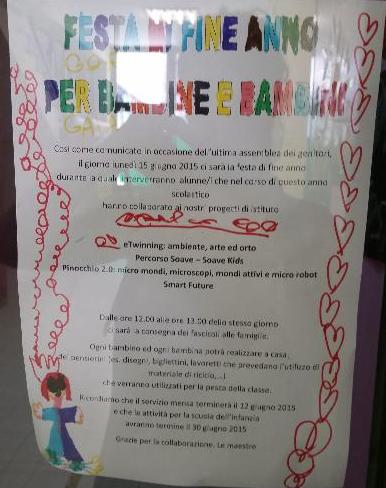 FESTA DI FINE ANNO
PER BAMBINE E BAMBINI
Così come comunicato in occasione dell'ultima assemblea dei genitori,
il giorno lunedì 15 giugno 2015 ci sarà la festa di fine anno
durante la quale interverranno alunne/i che nel corso di questo anno
scolastico
hanno collaborato ai nostri progetti di istituto
eTwinning: ambiente, arte ed orto
Percorso Soave – Soave Kids
Pinocchio 2.0: micro mondi, microscopi, mondi attivi e micro robot
Smart Future
Dalle ore 12.00 alle ore 13.00 dello stesso giorno
ci sarà la consegna dei fascicoli alle famiglie.
Ogni bambino ed ogni bambina potrà realizzare a casa
dei pensierini (es. disegni, bigliettini, lavoretti che prevedano l'utilizzo di
materiale di riciclo,...)
che verranno utilizzati per la pesca della classe.
Ricordiamo che il servizio mensa terminerà il 12 giugno 2015
e che le attività per la scuola dell'infanzia
avranno termine il 30 giugno 2015
Grazie per la collaborazione. Le maestre